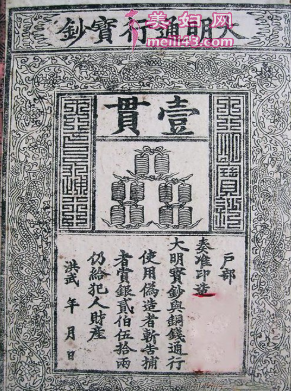 美妇网
meili43.com
大明通行寳鈔
壹貫
大明寶鈔
天下通行
户部
奏准印造
大明寳鈔與銅錢通行
使用偽造者斬告捕
者賞銀貳佰伍拾兩
仍給犯人財產
洪武 年 月 日